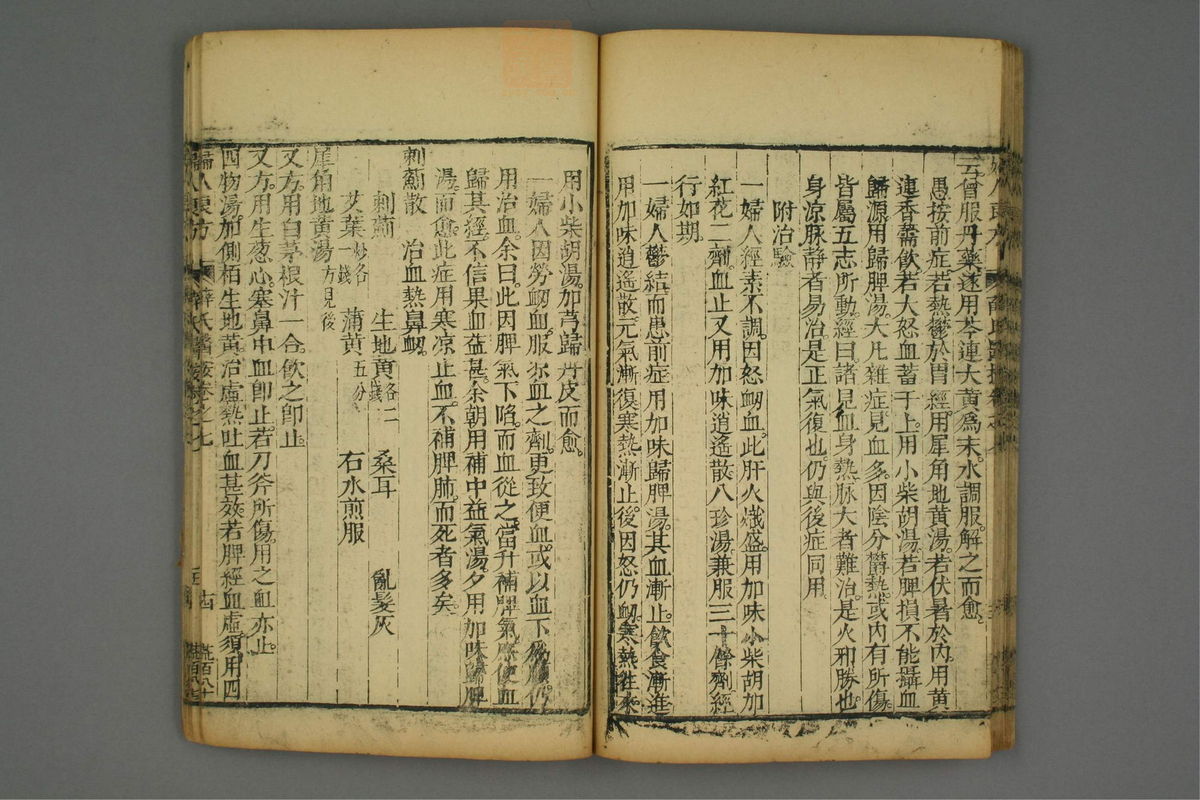 云曾服丹藥遂用芩連大黃為末水調服解之而愈
愚按前症若熱鬱於胃經用犀角地黃湯若伏暑於內用黃
連香薷飲若大怒血蓄于上用小柴胡湯若脾損不能攝血
歸源用歸脾湯大凡雜症見血多因陰分鬱熱或內有所傷
皆屬五志所動經曰諸見血身熱脉大者難治是火邪勝也
身凉脉靜者易治是正氣復也仍與後症同用
附治驗
一婦人經素不調因怒衂血此肝火熾盛用加味小柴胡加
紅花二劑血止又用加味逍遙散八珍湯兼服三十餘劑經
行如期
一婦人鬱結而患前症用加味歸脾湯其血漸止飲食漸進
用加味逍遙散元氣漸復寒熱漸止後因怒仍衂寒熱往來
用小柴胡湯加芎歸丹皮而愈
一婦人因勞衂血服凉血之劑更致便血或以血下為順仍
用治血余曰此因脾氣下陷而血從之當升補脾氣庶使血
歸其經不信果血益甚余朝用補中益氣湯夕用加味歸脾
湯而愈此症用寒凉止血不補脾肺而死者多矣
刺薊散 治血熱鼻衂
刺薊 生地黃各二錢 桑耳 亂髮灰
艾葉炒各一錢方見後 蒲黃五分 右水煎服
犀角地黃湯
又方用白茅根汁一合飲之卽止
又方用生葱心寒鼻中血卽止若刀斧所傷用之血亦止
四物湯加側栢生地黃治虛熱吐血甚效若脾經血虛須用四
婦人良方 薛氏醫按卷之七